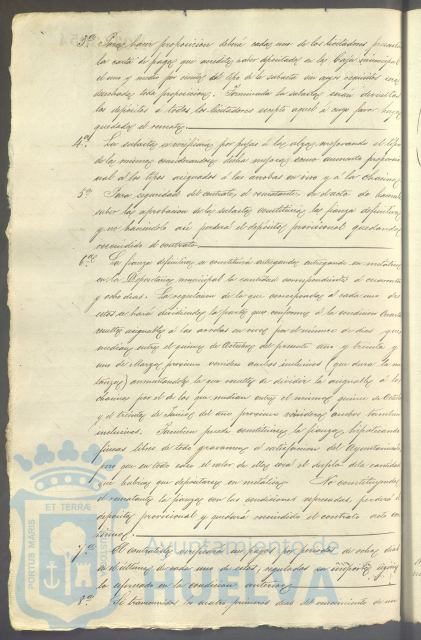 3ª Para hacer proposición deberá cada uno de los licitadores presentar
la carta de pago que acredite haber depositado en la Caja municipal
el uno y medio por ciento del tipo de la subasta sin cuyo requisito será
desechada toda proposición. Terminada la subasta serán devueltos
los depósitos a todos los licitadores excepto aquel a cuyo favor haya
quedado el remate.
4ª La subasta se verificará por pujas a la alza, mejorando el tipo
de la misma considerandose dicha mejora como aumento proporcio-
nal a los tipos asignados a las arrobas en vivo y a la chacina
5ª Para seguridad del contrato, el rematante
sobre la aprobacion de la subasta constituirá la fianza definitiva
y no haciendolo así perderá el depósito provisional quedando
rescindido el contrato.
6ª La fianza definitiva se constituirá entregando en metálico
en la Depositaria municipal la cantidad correspondiente a cuarenta
y ocho dias. La regulacion de la que corresponda a cada uno de
estos se hará dividiendo la parte que conforme a la condicion cuarta
resulte asignable a las arrobas en vivo por el número de dias que
median entre el quince de Octubre del presente año y treinta y
uno de Marzo próximo venidero ambos inclusives (que dura la ma-
tanza) aumentandole la que resulte de dividir la asignable a las
chacinas por el de los que median entre el mismo quince de Octubre
y el treinta de Junio del año próximo venidero ambos tambien
inclusives. Tambien puede constituirse la fianza, hipotecando
fincas libres de todo gravamen a satisfaccion del Ayuntamiento
pero que en todo caso el valor de ellas será el duplo de la cantidad
que habria que depositarse en metálico. No constituyendo
el rematante la fianza con las condiciones expresadas perderá el
depósito provisional y quedará rescindido el contrato
7ª El contratista verificará los pagos por periodos de ocho dias
en el último de cada uno de estos, regulados en importe segun
lo expresado en la condicion anterior.
8ª Si transcurridos los cuatro primeros dias del vencimiento de un
PORTUS MARIS ET TERRAE CUSTODIA
Ayuntamiento de
HUELVA